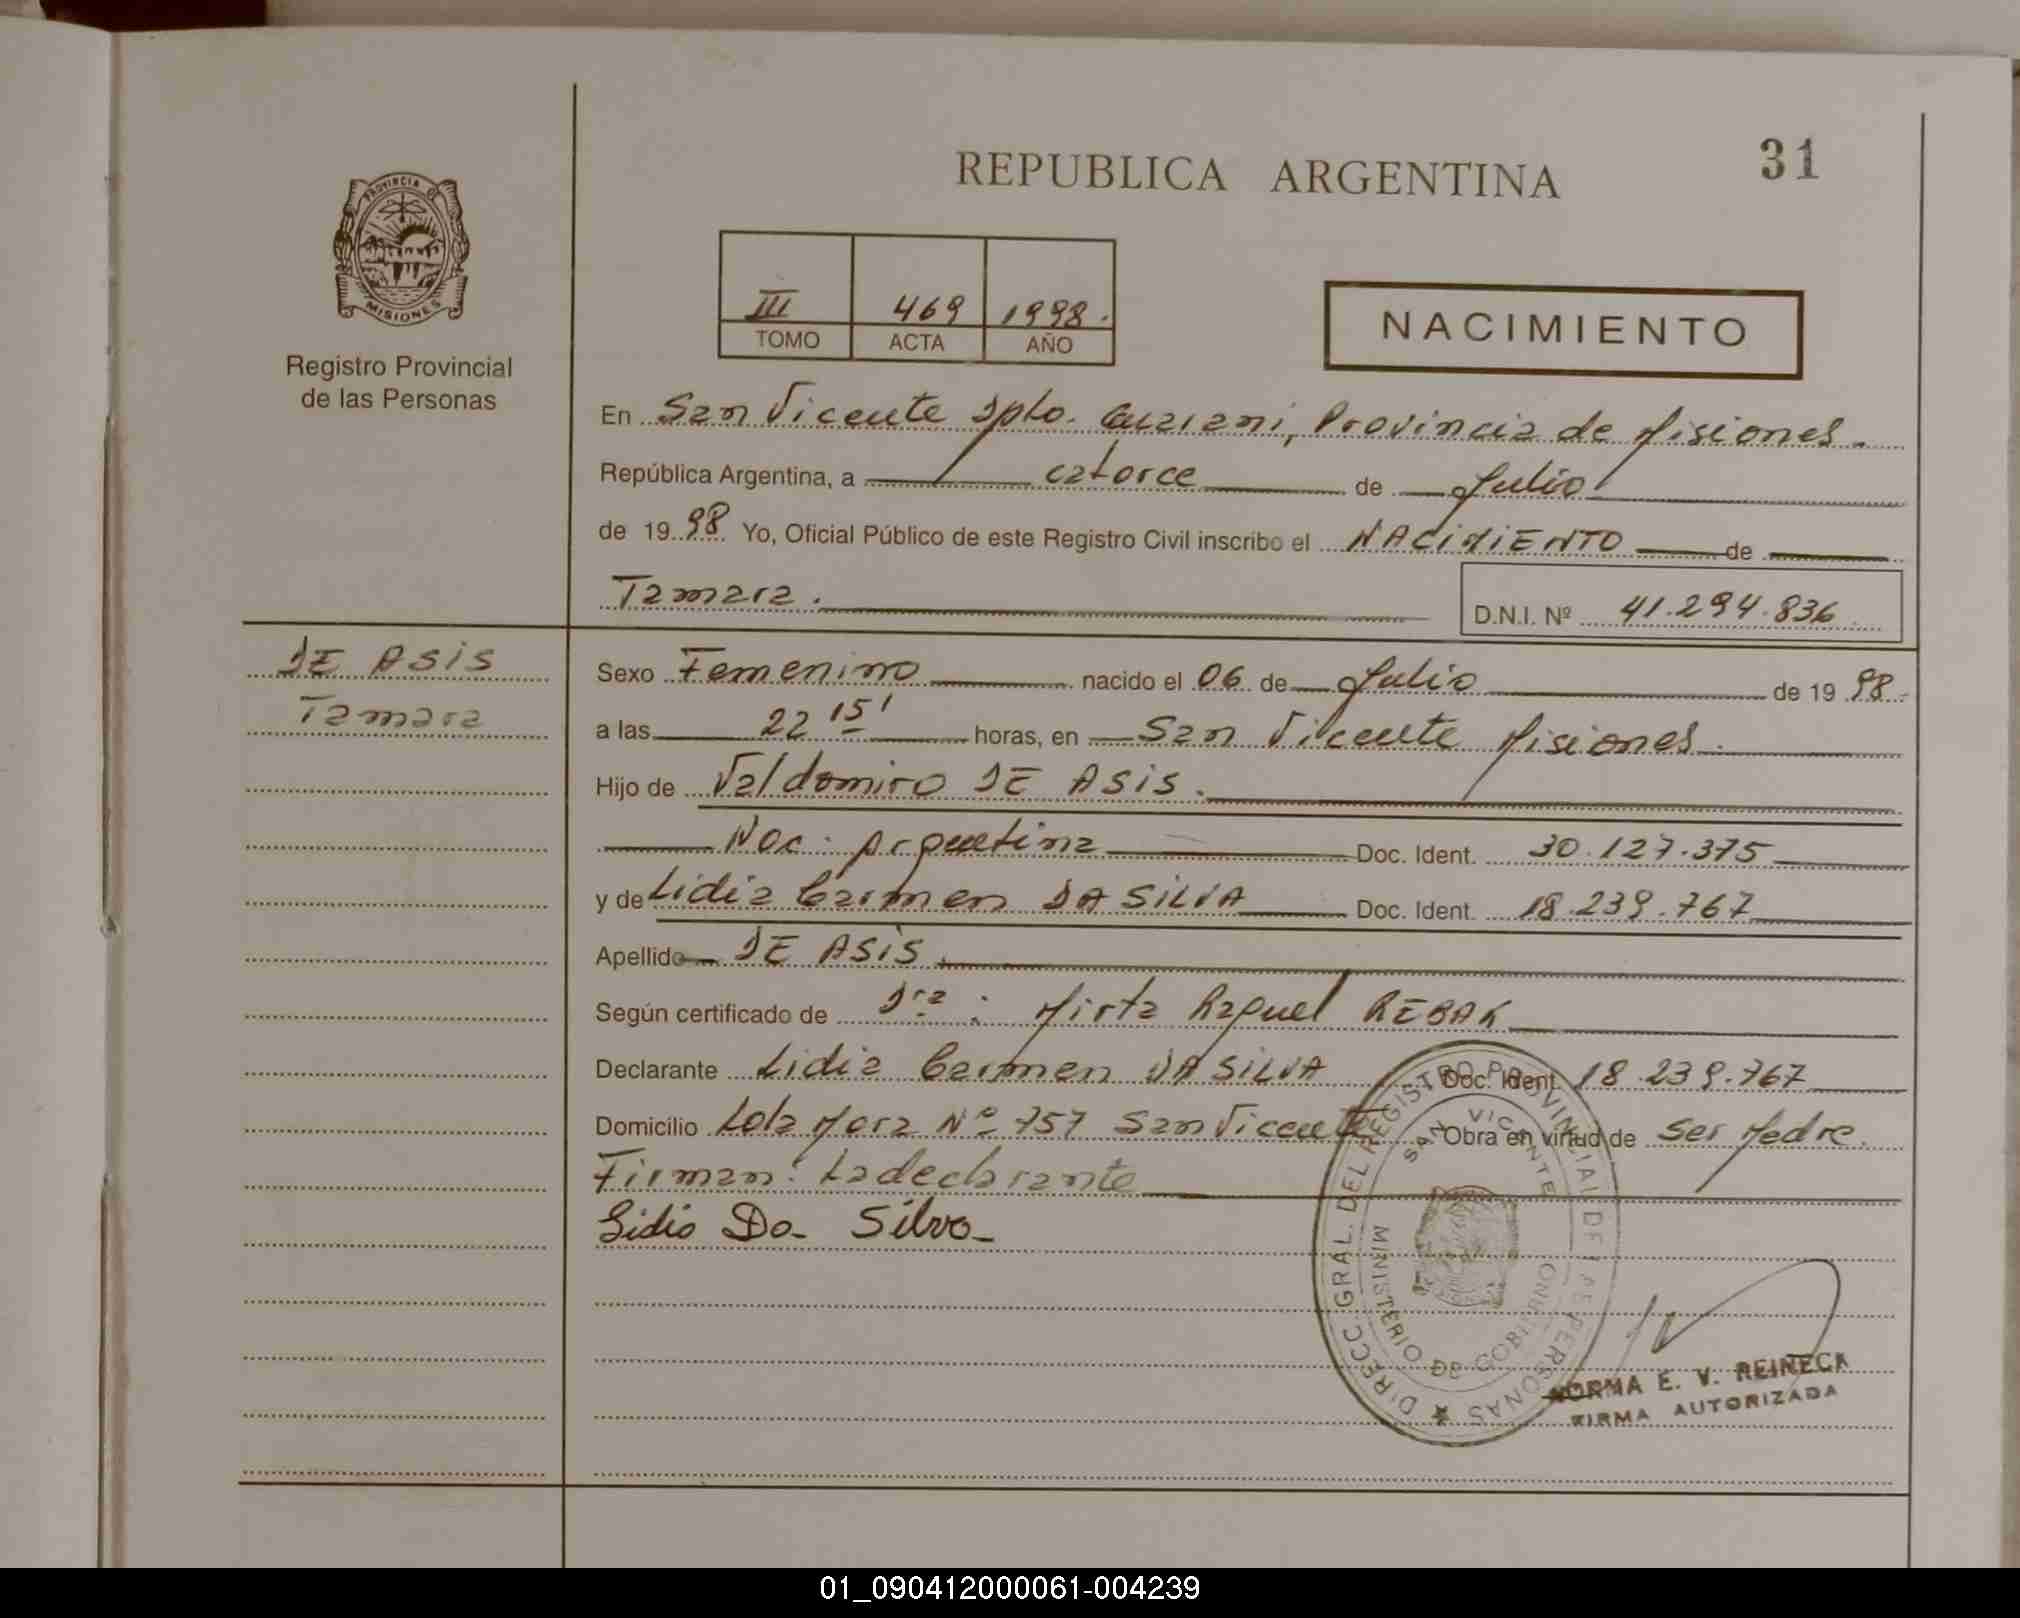 REPUBLICA ARGENTINA
31
PROVINCIA DE
MISIONES
Registro Provincial
de las Personas
III 469 1998.
TOMO ACTA AÑO
NACIMIENTO
En San Vicente Dpto. Guarani, Provincia de Misiones.
República Argentina, a catorce de Julio
de 1998 Yo, Oficial Público de este Registro Civil inscribo el NACIMIENTO de
Tamara.
D.N.I. Nº 41.294.836
DE ASIS
Tamara
Sexo Femenino nacido el 06 de Julio de 1998.
a las 22 15' horas, en San Vicente Misiones.
Hijo de Valdomiro DE ASIS.
Nac. Argentina Doc. Ident. 30.127.375
y de Lidia Carmen DA SILVA Doc. Ident. 18.239.767
Apellido DE ASIS.
Según certificado de Dra: Mirta Raquel REBAK
Declarante Lidia Carmen DA SILVA Doc. Ident. 18.239.767
Domicilio Lola Mora Nº 757 San Vicente Obra en virtud de ser Madre.
Firman: La declarante
Lidia Da Silva
DIRECC. GRAL. DEL REGISTRO PROVINCIAL DE LAS PERSONAS
SAN VICENTE
MINISTERIO DE GOBIERNO
NORMA E. V. REINECK
FIRMA AUTORIZADA
01_090412000061-004239